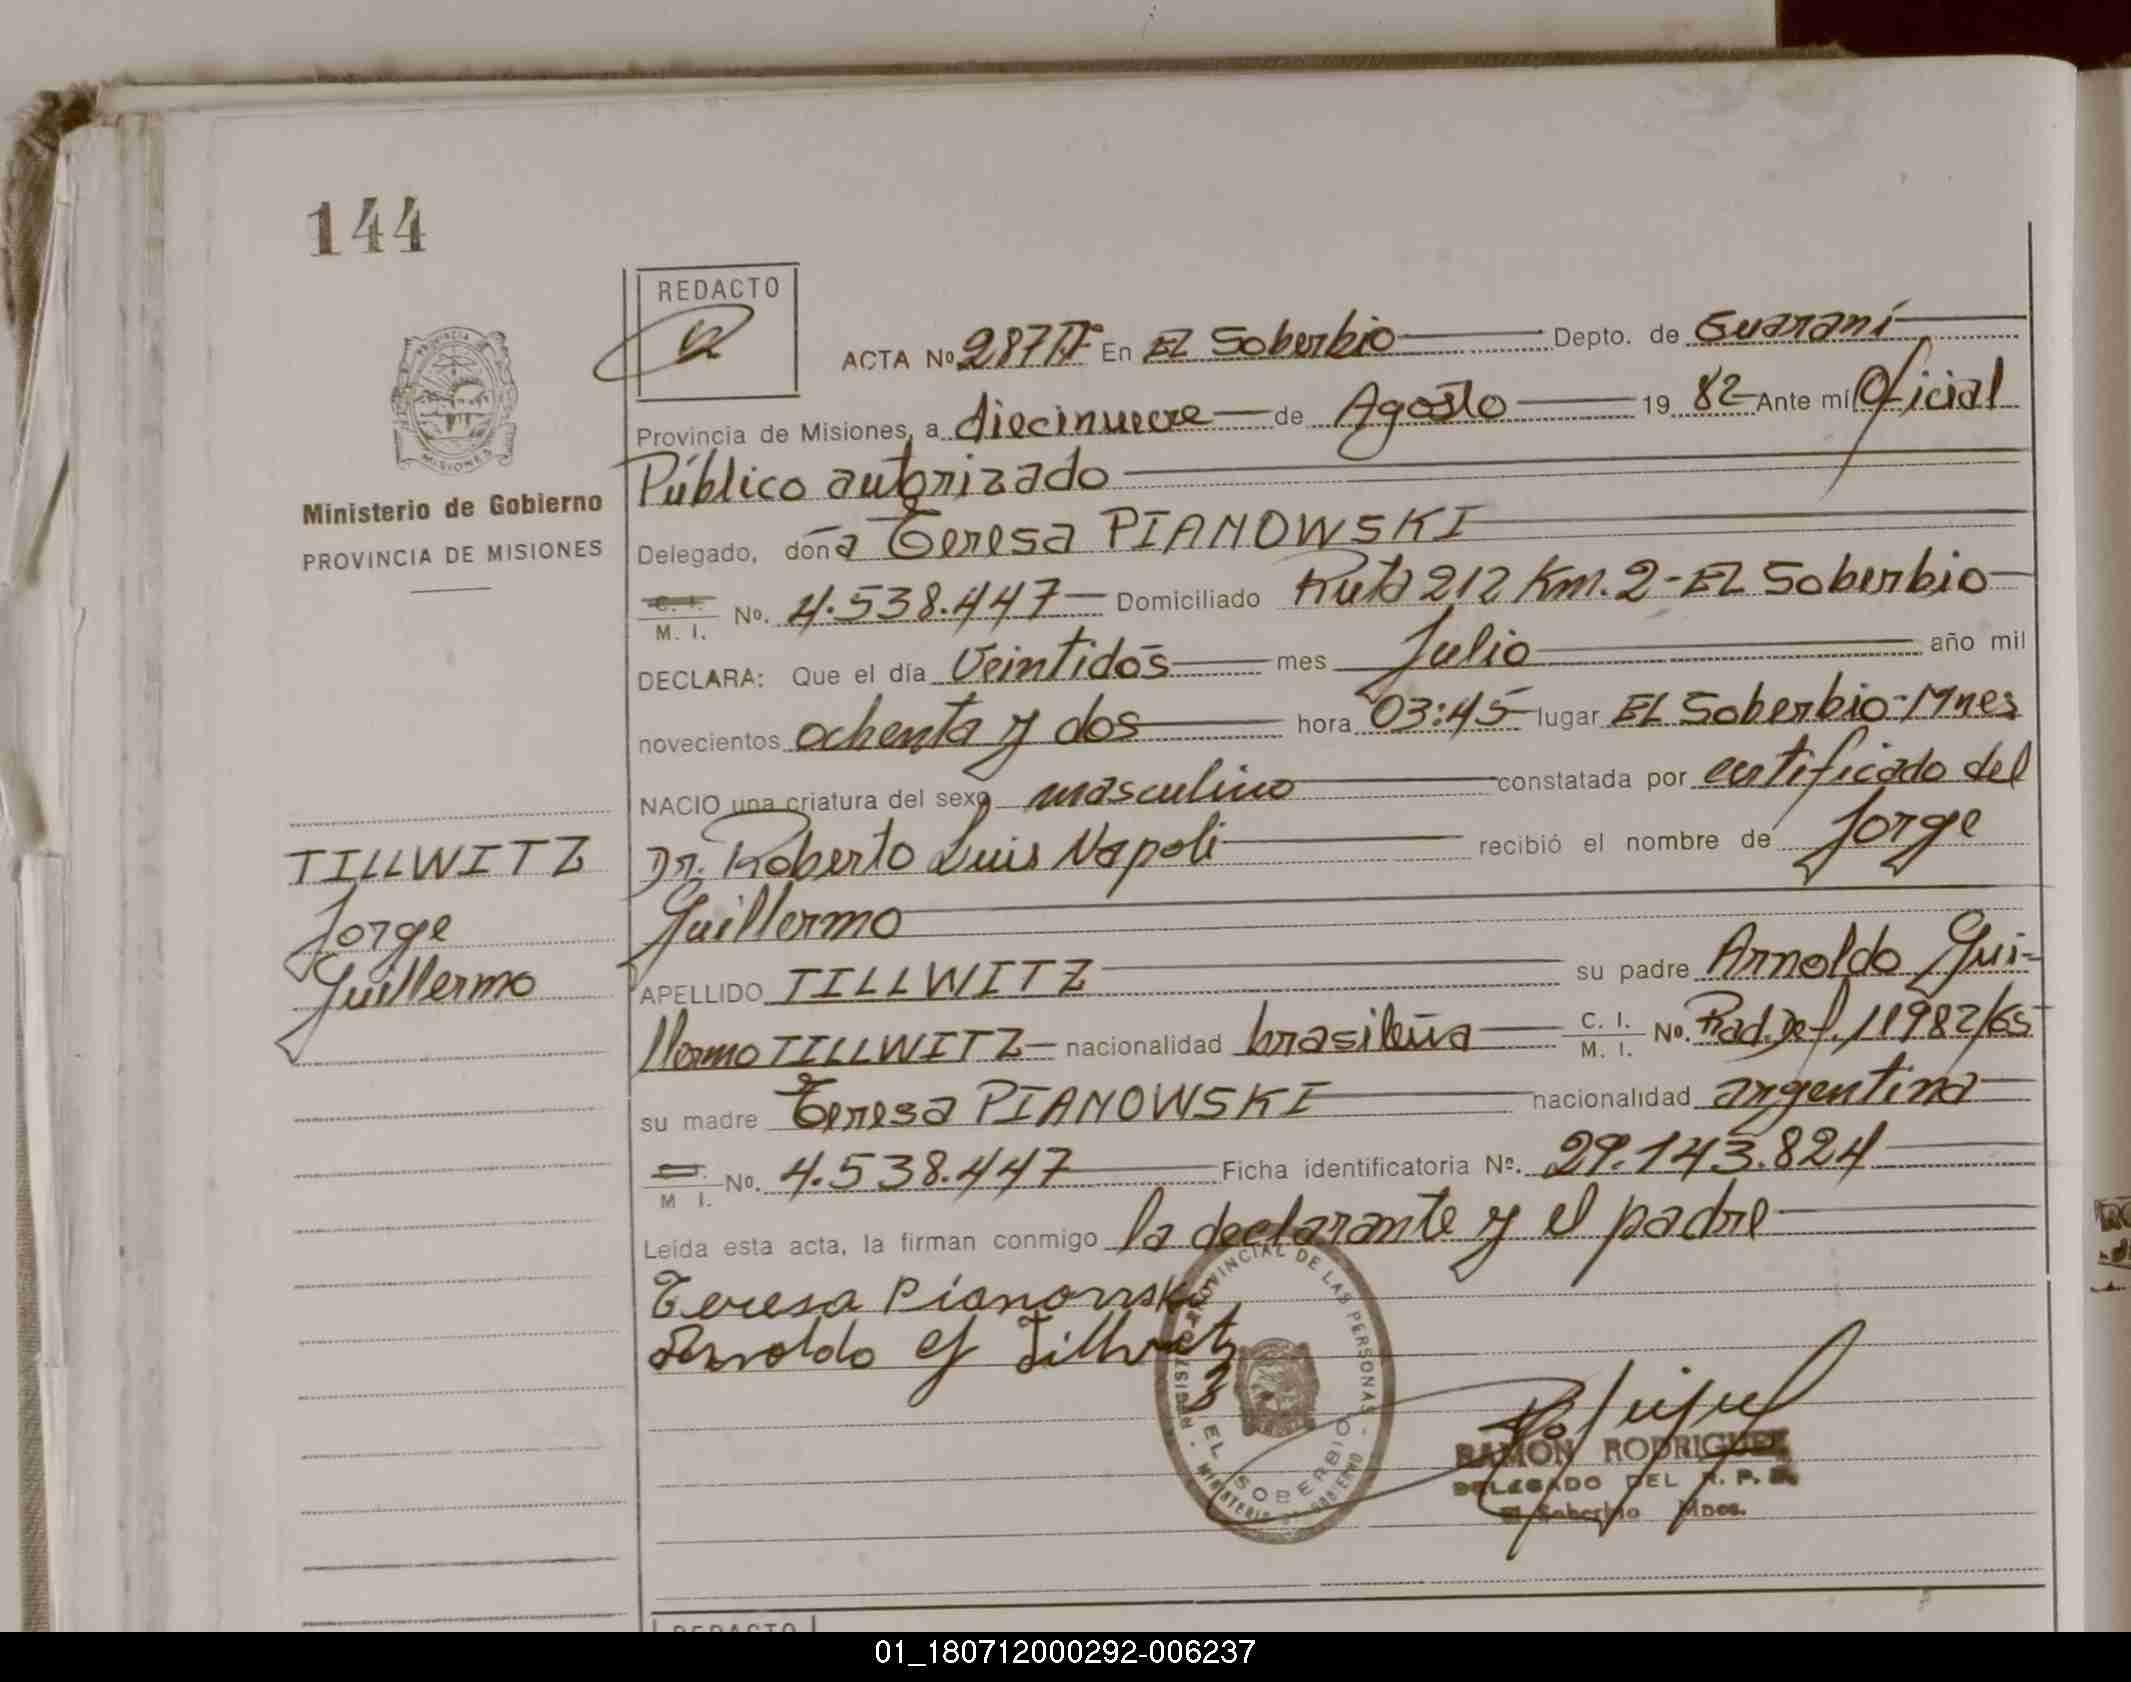 144
REDACTO
ACTA Nº 287 Tº En El Soberbio Depto. de Guaraní
Provincia de Misiones, a diecinueve de Agosto 19 82 Ante mí Oficial
Público autorizado
Ministerio de Gobierno
PROVINCIA DE MISIONES
Delegado, doña Teresa PIANOWSKI
C. I.
M. I. Nº. 4.538.447 Domiciliado Ruta 212 Km. 2 - El Soberbio
DECLARA: Que el día Veintidós mes Julio año mil
novecientos ochenta y dos hora 03:45 lugar El Soberbio - Mnes
NACIO una criatura del sexo masculino constatada por certificado del
Dr. Roberto Luis Napoli recibió el nombre de Jorge
Guillermo
TILLWITZ
Jorge
Guillermo
APELLIDO TILLWITZ su padre Arnoldo Gui-
llermo TILLWITZ nacionalidad brasileña C. I. M. I. Nº. Rad. Def. 11982/65
su madre Teresa PIANOWSKI nacionalidad argentina
M I. Nº. 4.538.447 Ficha identificatoria Nº. 29.143.824
Leída esta acta, la firman conmigo la declarante y el padre
Teresa Pianowski
Arnoldo G Tillwitz
REGISTRO PROVINCIAL DE LAS PERSONAS
EL SOBERBIO
MINISTERIO DE GOBIERNO
RAMON RODRIGUEZ
DELEGADO DEL R. P. P.
El Soberbio Mnes.
REDACTO
01_180712000292-006237